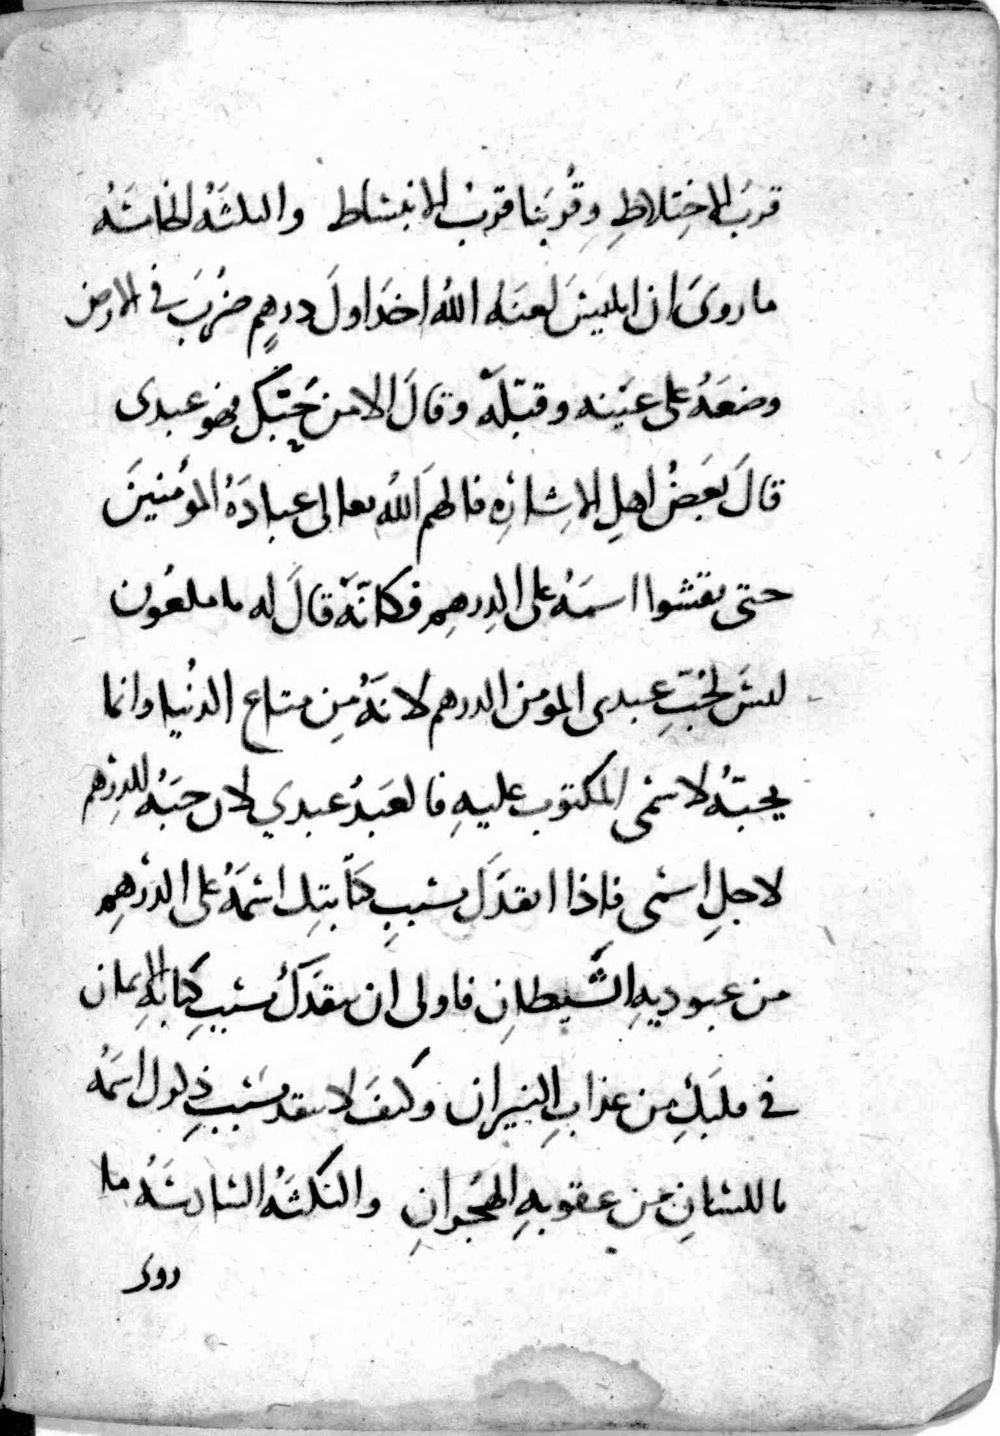 قربُ الاختِلاطِ وقُربَنا قربُ الانبساط والنكتَةُ الخامسَةُ
ما روىَ ان ابليسَ لعنه اللهُ اخذ اولَ درهمٍ ضُرِبَ في الارض
وضعَهُ على عينيه وقبّلَهُ وقالَ الا من حَبّكَ فهو عبدى
قالَ بَعضُ اهلِ الاِشارَةِ فالهمَ اللهُ تعالى عبادَهُ المؤمنينَ
حتى نقشوا اسمَهُ على الدرهمِ فكانّهُ قالَ له يا ملعُون
ليسَ يحُبّ عبدى المومن الدرهم لانهُ مِن متاع الدُنيا وانما
يحبّهُ لاسمى المكتوب عليهِ فالعَبدُ عبدي لان حبَّهُ للدِرهم
لاجلِ اسمى فاذا انقذَكَ بسببِ كتابتك اسمَهُ على الدرهمِ
من عبوديةِ الشَّيطانِ فاولى ان ينقذَكَ بسببِ كتابة الايمان
في قلبَكِ من عذابِ النيرانِ وكيفَ لا ينقذ بسَببِ دخول اسمهُ
باللسانِ من عقوبةِ الهجرانِ والنكتةُ السادسَةُ ما
روى